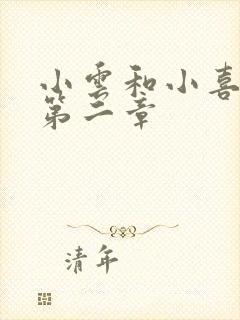 小雲和小喜
第二章
清年